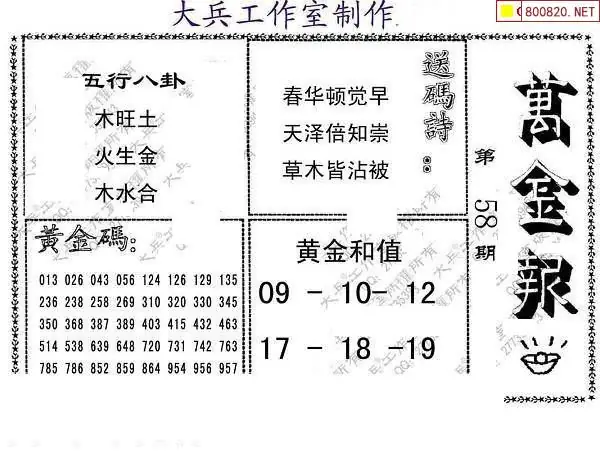 大兵工作室制作
800820.NET
萬金報
第58期
五行八卦
木旺土
火生金
木水合
送碼詩:
春华顿觉早
天泽倍知崇
草木皆沾被
黃金碼:
013 026 043 056 124 126 129 135
236 238 258 269 310 320 330 345
350 368 387 389 403 415 432 463
514 538 639 648 720 731 742 763
785 786 852 859 864 954 956 957
黄金和值
09 - 10- 12
17 - 18 -19